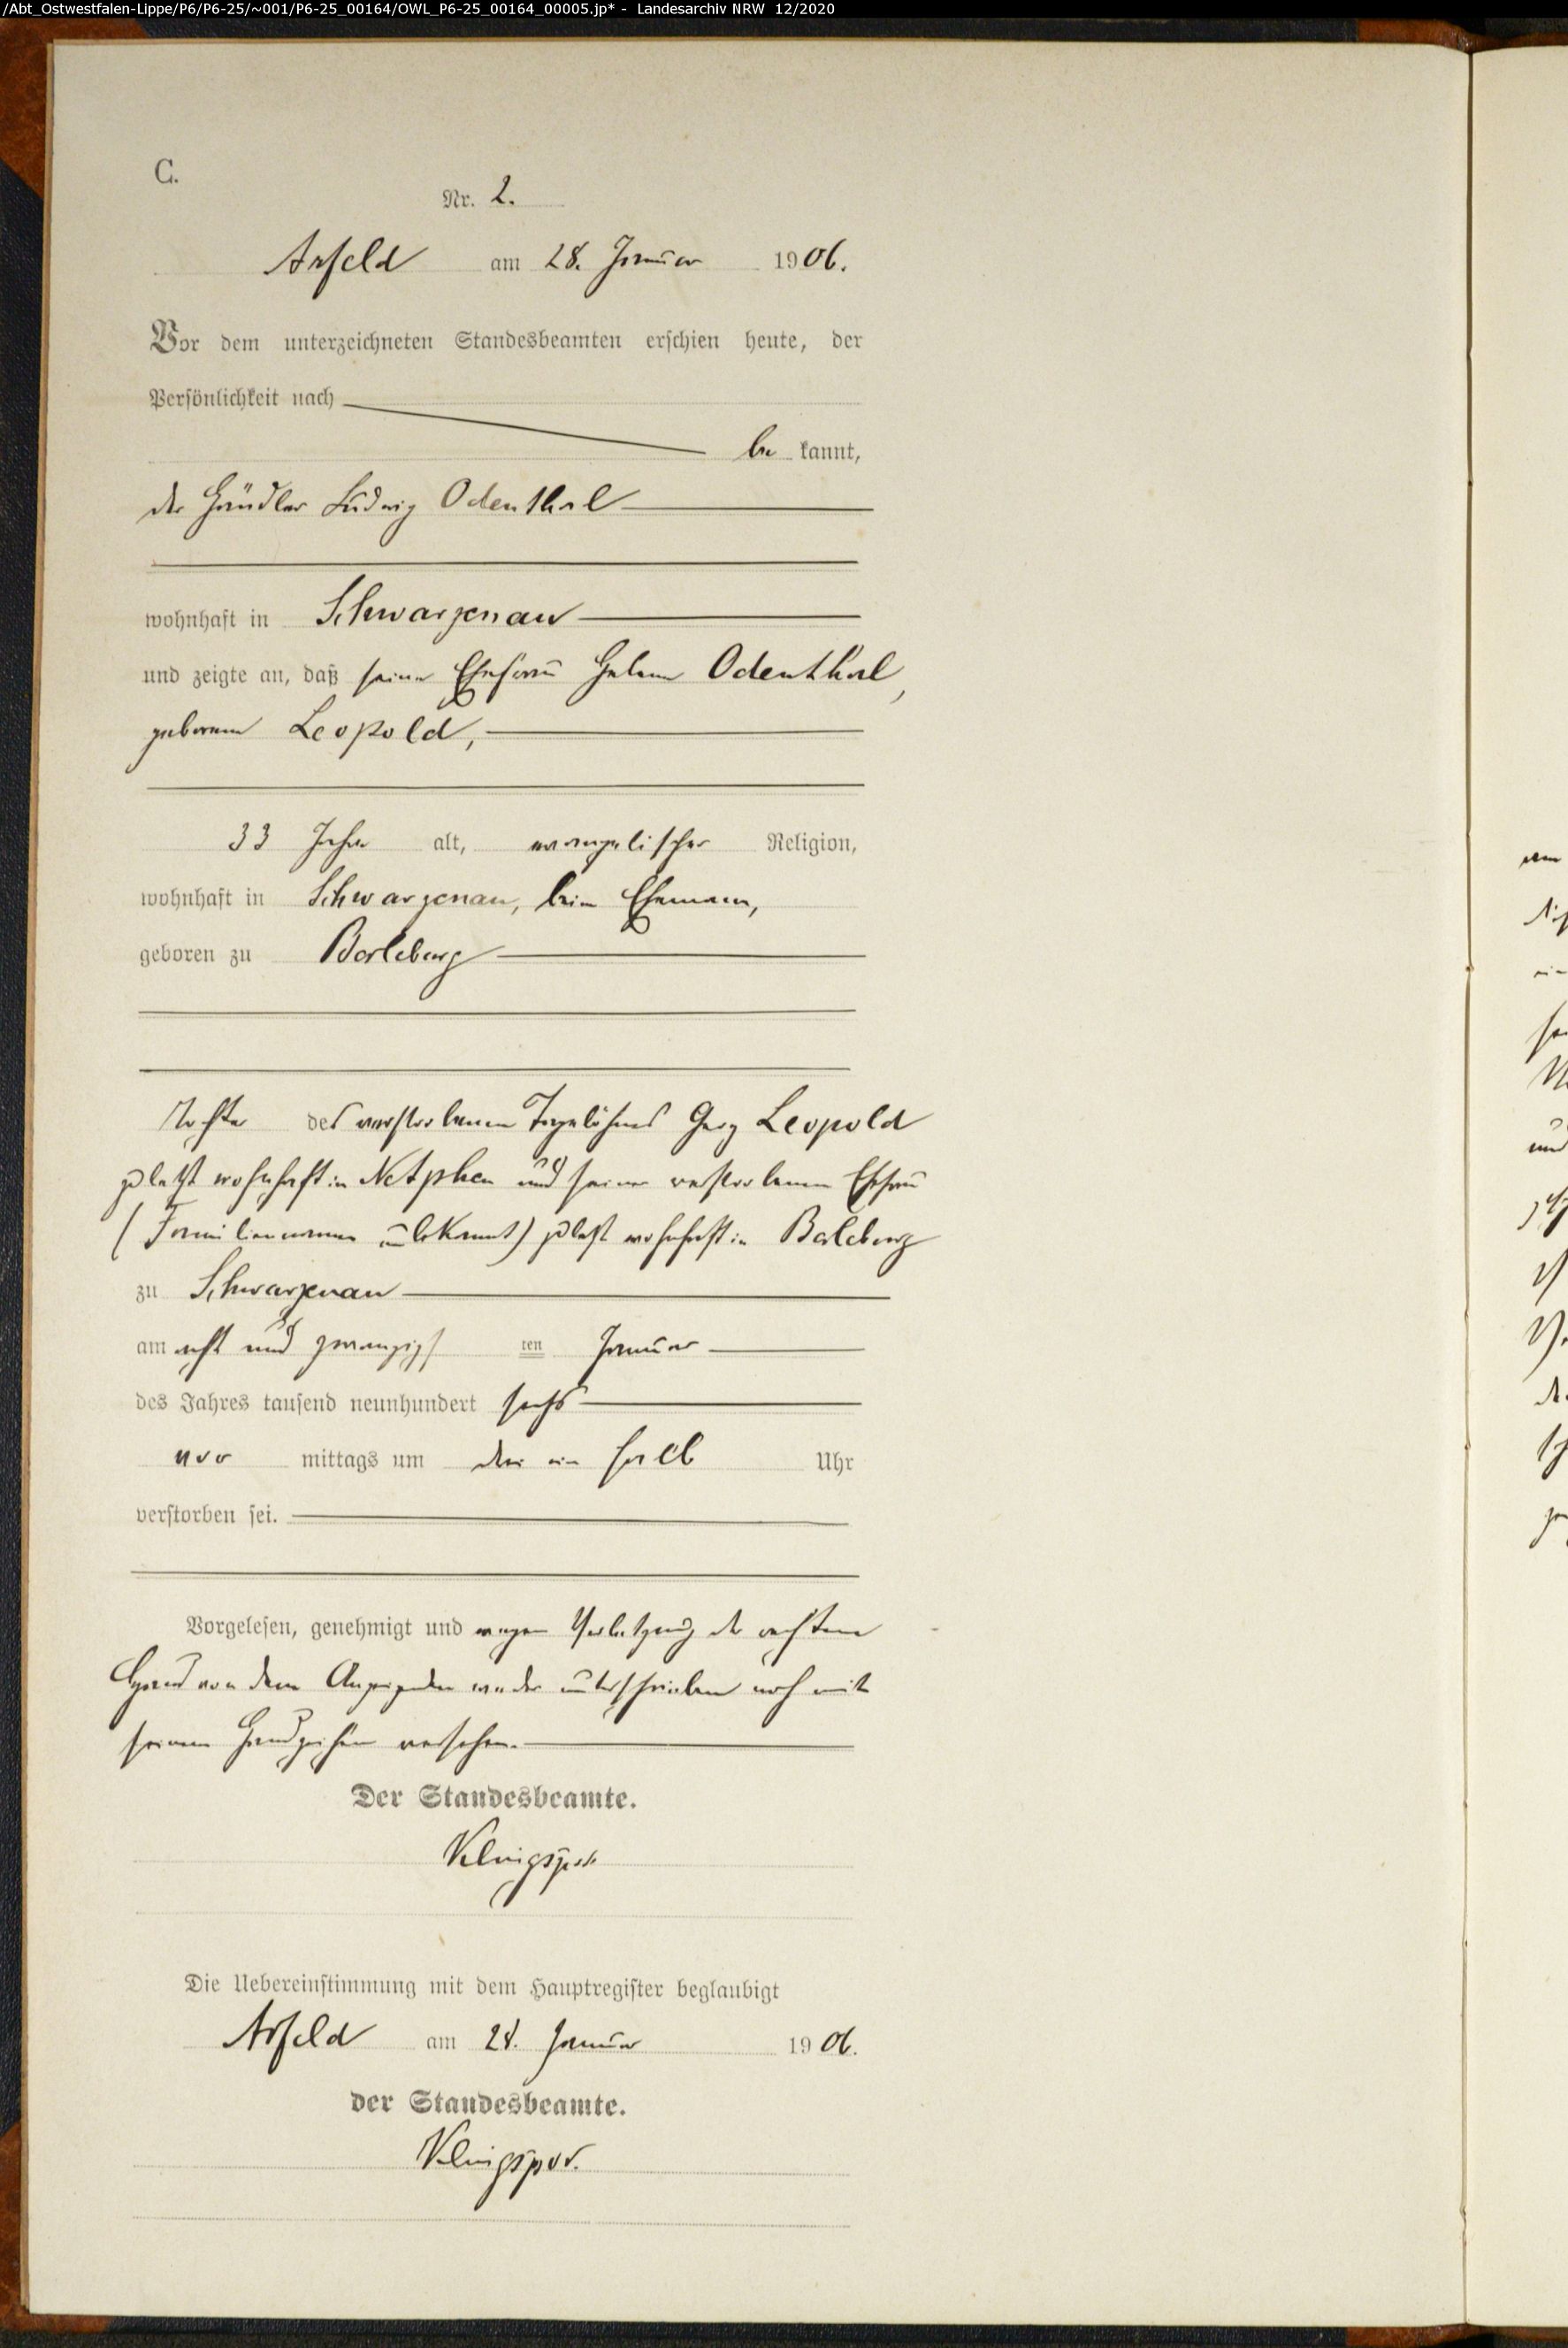 /Abt_Ostwestfalen-Lippe/P6/P6-25/~001/P6-25_00164/OWL_P6-25_00164_00005.jp* - Landesarchiv NRW 12/2020
C.
Nr. 2.
Arfeld am 28. Januar 1906.
Vor dem unterzeichneten Standesbeamten erschien heute, der
Persönlichkeit nach
be kannt,
der Händler Ludwig Odenthal
wohnhaft in Schwarzenau
und zeigte an, daß seine Ehefrau Helene Odenthal,
geborene Leopold,
33 Jahre alt, evangelischer Religion,
wohnhaft in Schwarzenau, beim Ehemann,
geboren zu Berleburg
Tochter des verstorbenen Tagelöhners Georg Leopold
zuletzt wohnhaft in Netphen und seiner verstorbenen Ehefrau
(Familienname unbekannt) zuletzt wohnhaft in Berleburg
zu Schwarzenau
am acht und zwanzigs ten Januar
des Jahres tausend neunhundert sechs
vor mittags um drei ein halb Uhr
verstorben sei.
Vorgelesen, genehmigt und wegen Verletzung der rechten
Hand von dem Anzeigenden weder unterschrieben noch mit
seinem Handzeichen versehen.
Der Standesbeamte.
Klingspor
Die Uebereinstimmung mit dem Hauptregister beglaubigt
Arfeld am 28. Januar 1906.
der Standesbeamte.
Klingspor.